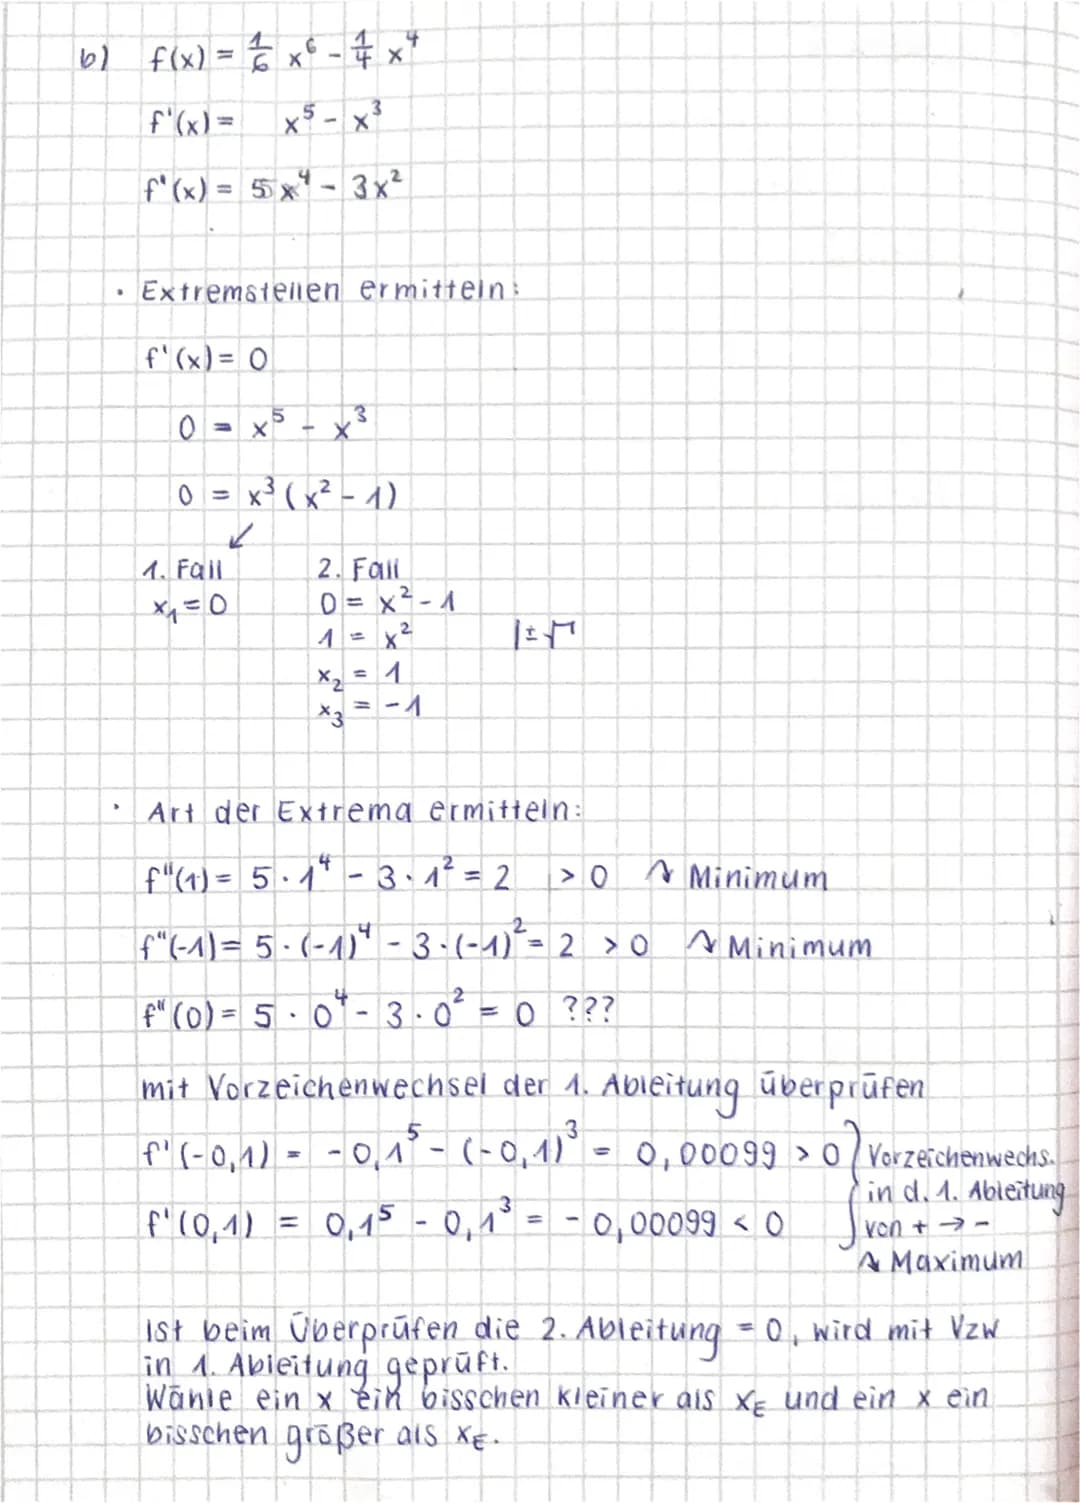 b) f(x) = 1/6 x⁶ - 1/4 x⁴
f'(x) = x⁵ - x³
f"(x) = 5x⁴ - 3x²
• Extremstellen ermitteln:
f'(x) = 0
0 = x⁵ - x³
0 = x³ (x² - 1)
↙
1. Fall 2. Fall
x₁ = 0 0 = x² - 1
1 = x² |±√
x₂ = 1
x₃ = -1
• Art der Extrema ermitteln:
f"(1) = 5 · 1⁴ - 3 · 1² = 2 > 0 ↷ Minimum
f"(-1) = 5 · (-1)⁴ - 3 · (-1)² = 2 > 0 ↷ Minimum
f"(0) = 5 · 0⁴ - 3 · 0² = 0 ???
mit Vorzeichenwechsel der 1. Ableitung überprüfen
f'(-0,1) = -0,1⁵ - (-0,1)³ = 0,00099 > 0 } Vorzeichenwechs.
in d. 1. Ableitung
f'(0,1) = 0,1⁵ - 0,1³ = -0,00099 < 0 von + → -
↷ Maximum
Ist beim Überprüfen die 2. Ableitung = 0, wird mit VZW
in 1. Ableitung geprüft.
Wähle ein x ein bisschen kleiner als x_E und ein x ein
bisschen größer als x_E.